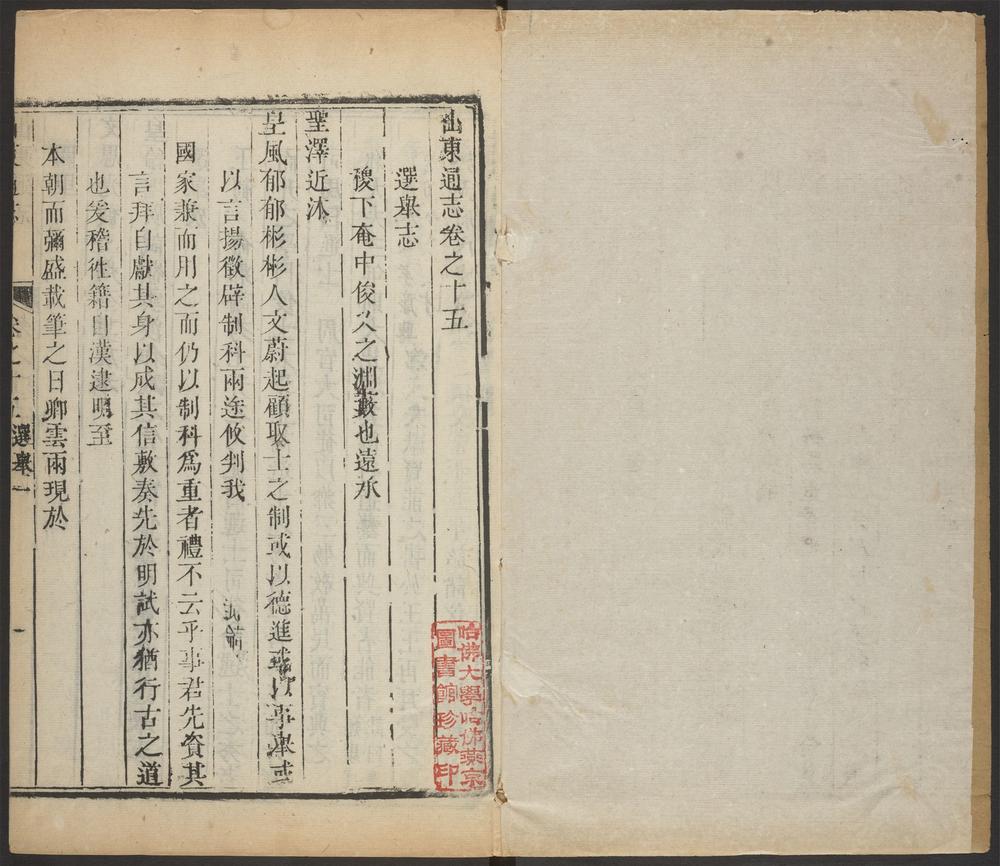 山東通志卷之十五
選舉志
稷下奄中俊乂之淵藪也遠承
聖澤近沐
皇風郁郁彬彬人文蔚起顧取士之制或以德進或以事舉或
以言揚徵辟制科兩途攸判我
國家兼而用之而仍以制科爲重者禮不云乎事君先資其
言拜自獻其身以成其信敷奏先於明試亦猶行古之道
也爰稽徃籍自漢逮明至
本朝而彌盛載筆之日卿雲兩現於
卷之十五 選舉一
一
哈佛大學哈佛燕京
圖書館珍藏印